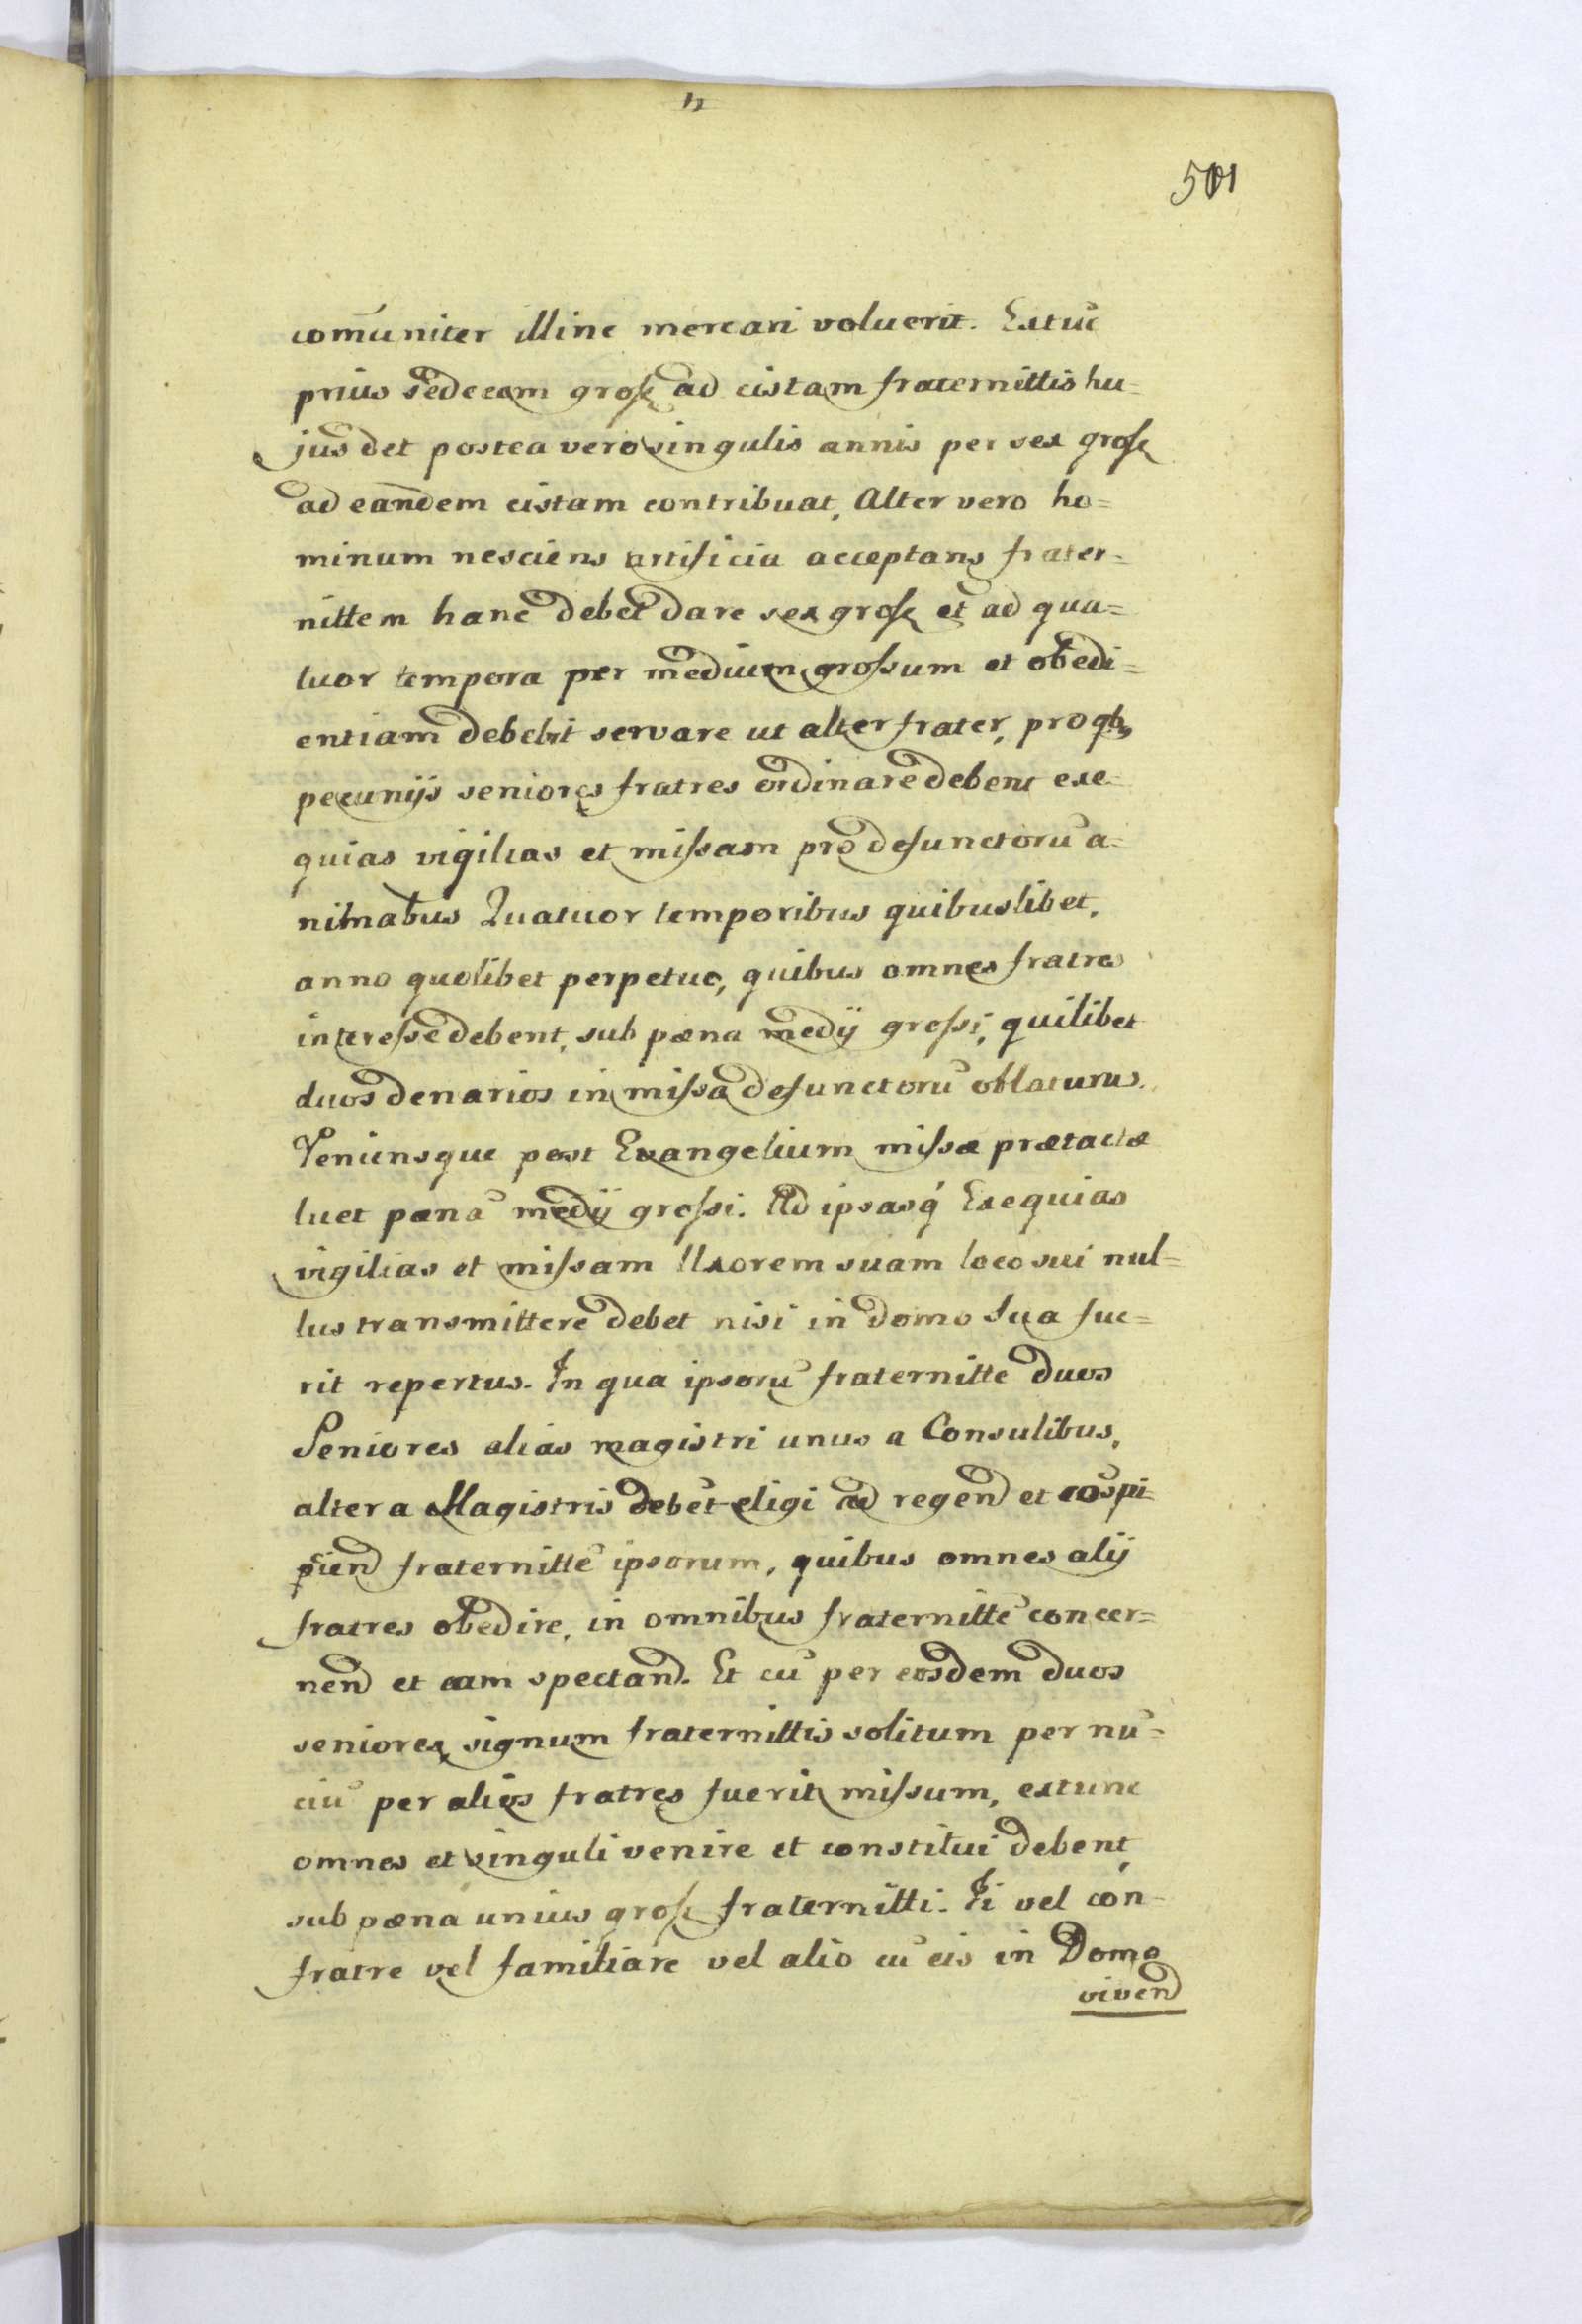 501
com̄uniter illinc mercari voluerit. Extuc̄
prius sedecem grosſ ad cistam fraternittis hu=
jus det postea vero singulis annis per sex grosſ
ad eandem cistam contribuat, Alter vero ho=
minum nesciens artificia acceptans frater=
nittem hanc debet dare sex grosſ et ad qua=
tuor tempora per medium groſsum et obedi=
entiam debebit servare ut alter frater, pro qb9
pecunijs seniores fratres ordinare debent exe=
quias vigilias et miſsam pro defunctorū a=
nimabus Quatuor temporibus quibuslibet,
anno quolibet perpetuo, quibus omnes fratres
intereſse debent, sub pæna medij groſsi, quilibet
duos denarios in miſsa defunctorū oblaturus.
Veniensque post Evangelium miſsæ prætactæ
luet pænā medij groſsi. Ad ipsasq́ Exequias
vigilias et miſsam Uxorem suam loco sui nul=
lus transmittere debet nisi in domo sua fue=
rit repertus. In qua ipsorū fraternitte duos
Seniores alias magistri unus a Consulibus,
alter a Magistris debēt eligi ad regend et
fraternittē ipsorum, quibus omnes alij
fratres obedire, in omnibus fraternittē concer=
nend et eam spectand. Et cū per eosdem duos
seniores signum fraternittis solitum per nū=
ciū per alios fratres fuerit miſsum, extunc
omnes et singuli venire et constitui debent
sub pæna unius grosſ fraternitti. Ii vel con=
fratre vel familiare vel alio cū eis in Domo
vivend